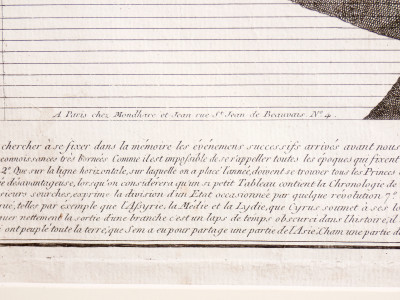 A Paris chez Mondhare et Jean rue St. Jean de Beauvais No. 4.
chercher à se fixer dans la mémoire les événemens successifs arrivés avant nous
connoissances très bornées Comme il est impossible de se rappeller toutes les époques qui fixent
2º. Que sur la ligne horizontale, sur laquelle on a placé l'année, doivent se trouver tous les Princes
désavantageuse, lorsqu'on considerera qu'un si petit Tableau contient la Chronologie de
sieurs sourches, exprime la division d'un Etat occasionné par quelque révolution 7º.
rue, telles par éxemple que l'Assyrie, la Médie et la Lydie, que Cyrus soumet à ses lo
uer nettement la sortie d'une branche c'est un laps de temps obscurci dans l'histoire, il
i ont peuplé toute la terre, que Sem a eu pour partage une partie de l'Asie, Cham une partie d